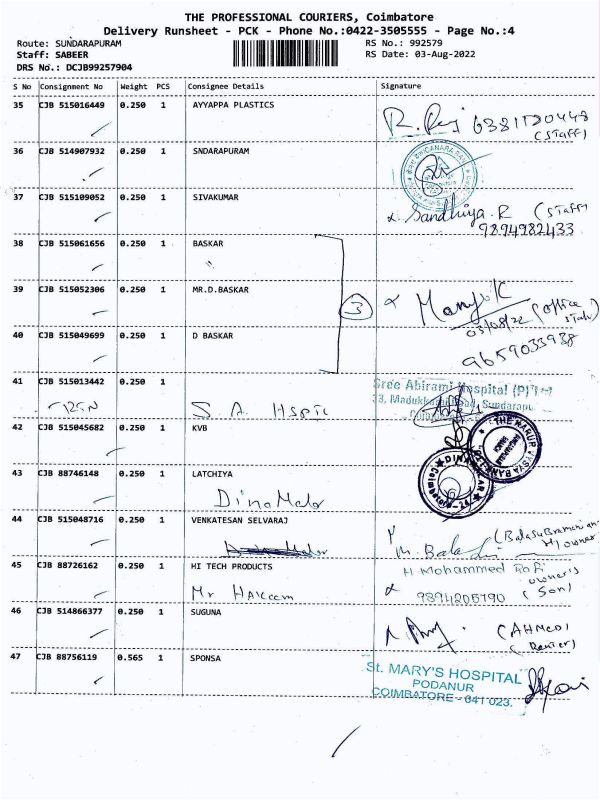 THE PROFESSIONAL COURIERS, Coimbatore
Delivery Runsheet - PCK - Phone No.:0422-3505555 - Page No.:4
Route: SUNDARAPURAM RS No.: 992579
Staff: SABEER RS Date: 03-Aug-2022
DRS No.: DCJB99257904
S No Consignment No Weight PCS Consignee Details Signature
35 CJB 515016449 0.250 1 AYYAPPA PLASTICS
(Staff)
36 CJB 514907932 0.250 1 SNDARAPURAM
CANARA BANK
37 CJB 515109052 0.250 1 SIVAKUMAR
Sandhiya.R (Staff)
9894982433
38 CJB 515061656 0.250 1 BASKAR
39 CJB 515052306 0.250 1 MR.D.BASKAR
3
(office
03/08/22
40 CJB 515049699 0.250 1 D BASKAR
9659033938
41 CJB 515013442 0.250 1
Sree Abirami Hospital (P)
33, Madukkarai Road, Sundarapu
S A HSPTL
42 CJB 515045682 0.250 1 KVB
THE KARUR VYSYA BANK
43 CJB 88746148 0.250 1 LATCHIYA
Dina Malar
DINAMALAR
Coimbatore
44 CJB 515048716 0.250 1 VENKATESAN SELVARAJ
M. Bala
owner
45 CJB 88726162 0.250 1 HI TECH PRODUCTS
H Mohammed Rafi
Mr Hakeem
9894205790
owner's
(Son)
46 CJB 514866377 0.250 1 SUGUNA
(AHMED)
47 CJB 88756119 0.565 1 SPONSA
St. MARY'S HOSPITAL
PODANUR
COIMBATORE - 641 023.